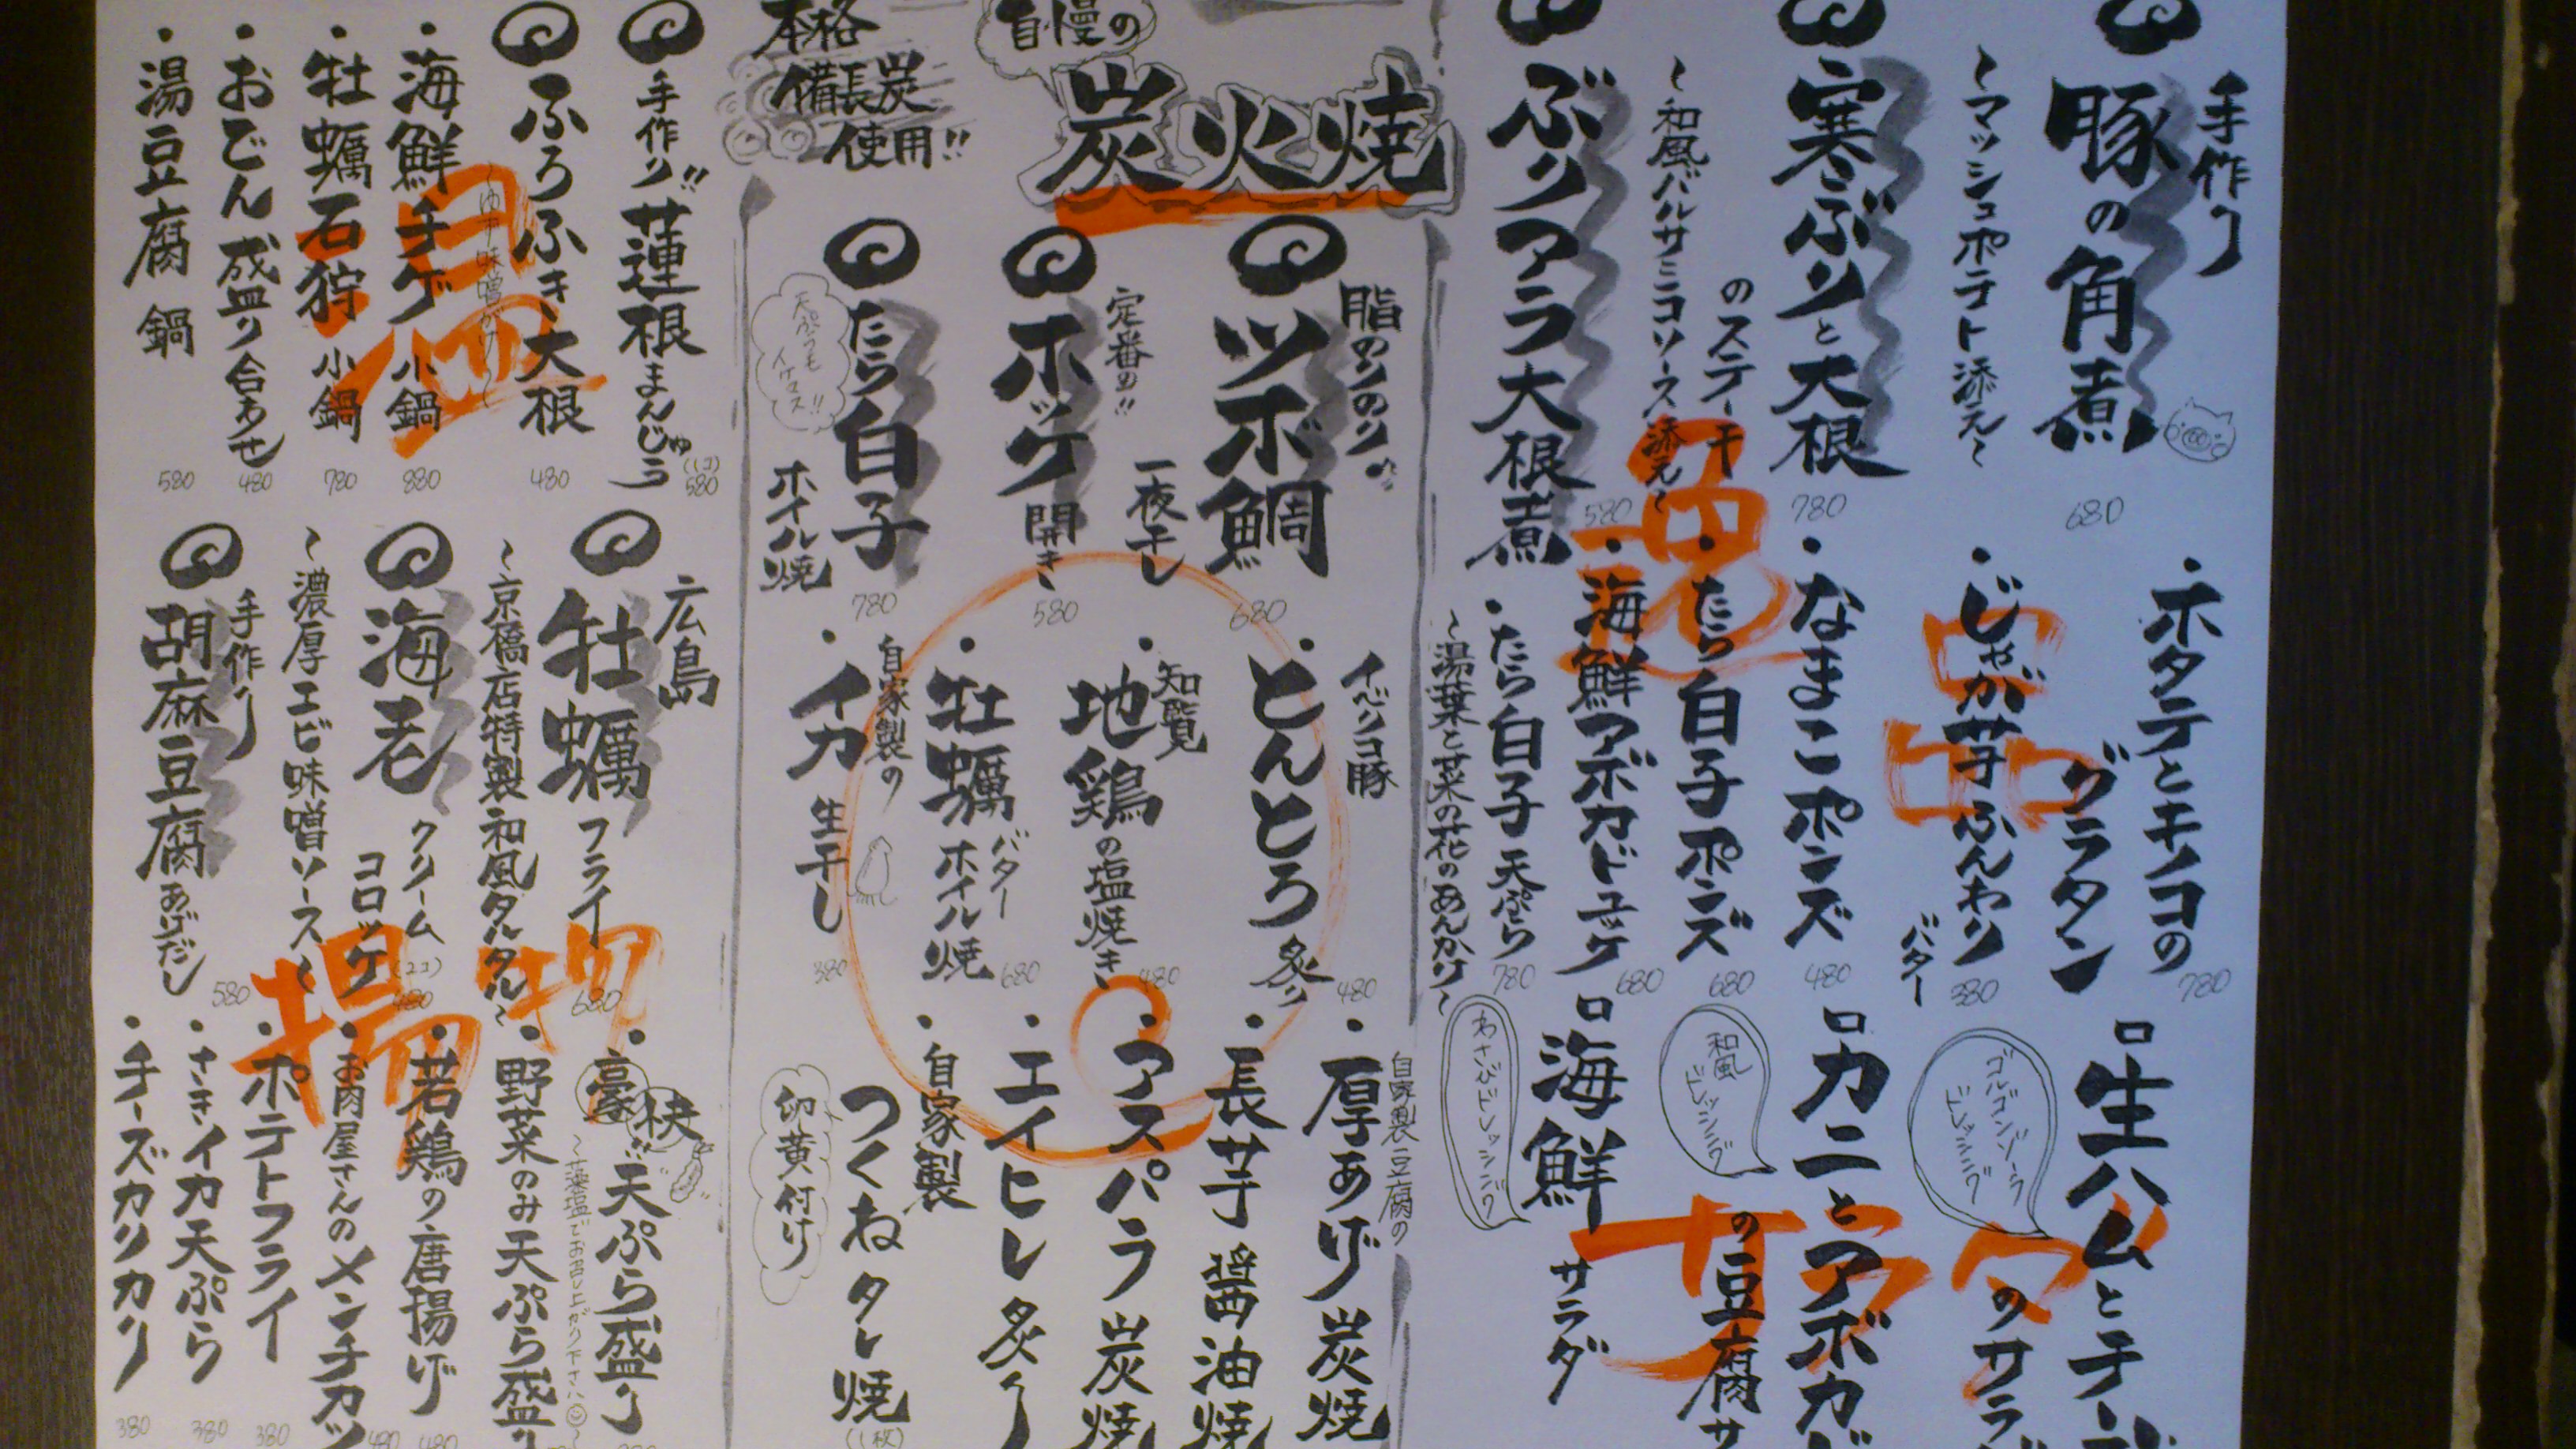 手作り
豚の角煮
〜マッシュポテト添え〜
680
寒ぶりと大根
のステーキ
〜和風バルサミコソース添え〜
780
ぶりアラ大根煮
580
ホタテとキノコの
グラタン
780
じゃが芋ふんわり
バター
380
なまこポンズ
480
たら白子ポンズ
680
海鮮アボカドユッケ
680
たら白子天ぷら
〜湯葉と菜の花のあんかけ〜
780
逸
品
生ハムとチーズ
のサラダ
ゴルゴンゾーラ
ドレッシング
カニとアボカド
の豆腐サ
和風
ドレッシング
海鮮
サラダ
わさびドレッシング
サラダ
自慢の
炭火焼
本格
備長炭
使用!!
脂のりのり!!
ツボ鯛
一夜干し
680
定番の!!
ホッケ
開き
580
たら白子
ホイル焼
780
天ぷらも
イケマス!!
イベリコ豚
とんとろ
炙り
480
知覧
地鶏の塩焼き
480
牡蠣
バター
ホイル焼
680
自家製の
イカ
生干し
380
自家製豆腐の
厚あげ炭焼
長芋醤油焼
アスパラ炭焼
エイヒレ炙り
自家製
つくねタレ焼
(1枚)
卵黄付け
手作り!!
蓮根まんじゅう
(1コ)
580
ふろふき大根
〜ゆず味噌がけ〜
480
海鮮チゲ小鍋
880
牡蠣石狩小鍋
780
おでん盛り合わせ
480
湯豆腐鍋
580
温
広島
牡蠣フライ
〜京橋店特製和風タルタル〜
680
海老
クリーム
コロッケ
(2コ)
480
〜濃厚エビ味噌ソース〜
手作り
胡麻豆腐あげだし
580
揚物
豪快!!
天ぷら盛り
〜藻塩でお召し上がり下さい〜
野菜のみ天ぷら盛り
若鶏の唐揚げ
480
お肉屋さんのメンチカツ
480
ポテトフライ
380
さきイカ天ぷら
380
チーズカリカリ
380